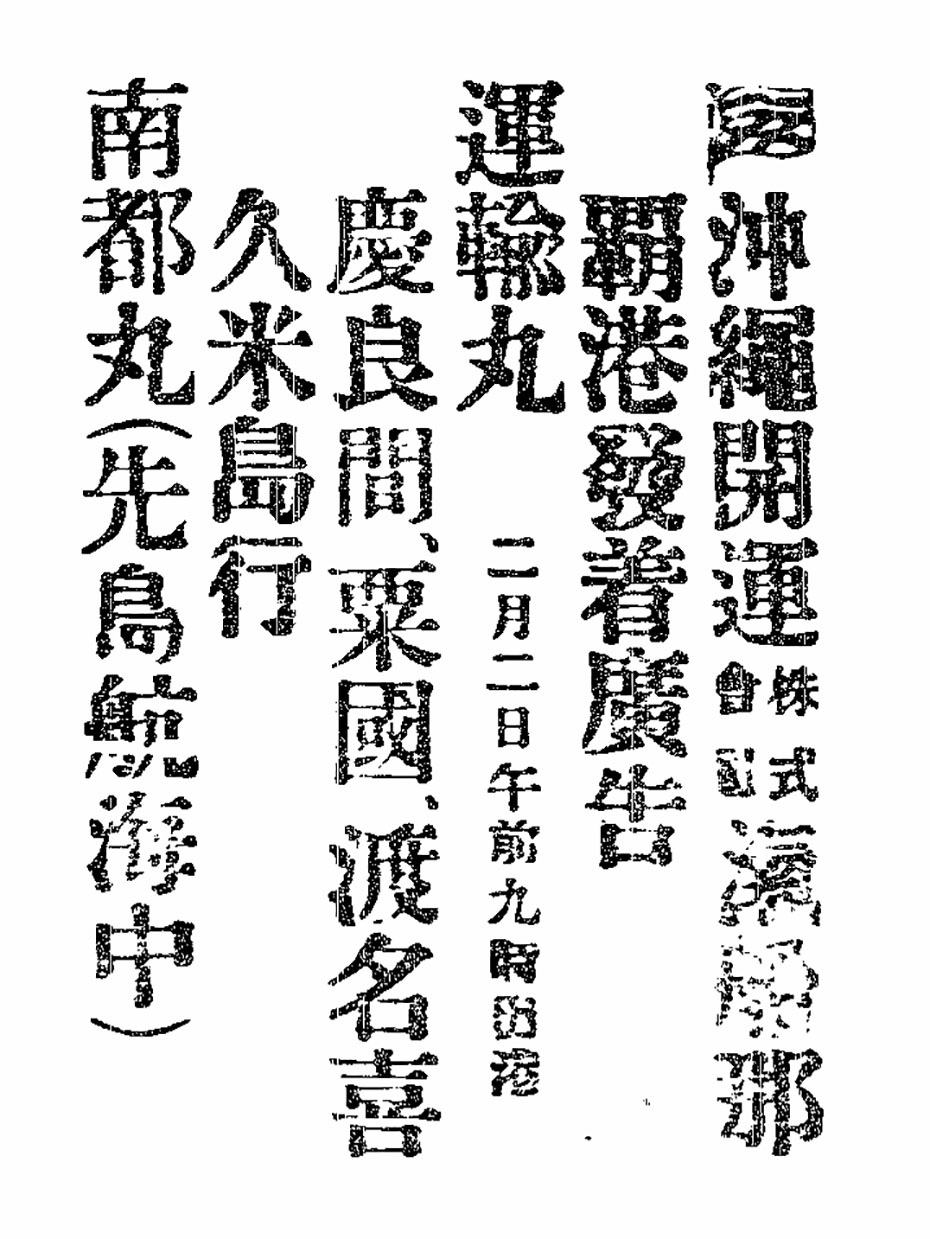 沖繩開運株式會社滊船那
覇港發着廣告
運輸丸　二月二日午前九時出港
慶良間、粟國、渡名喜
久米島行
南都丸(先島航海中)